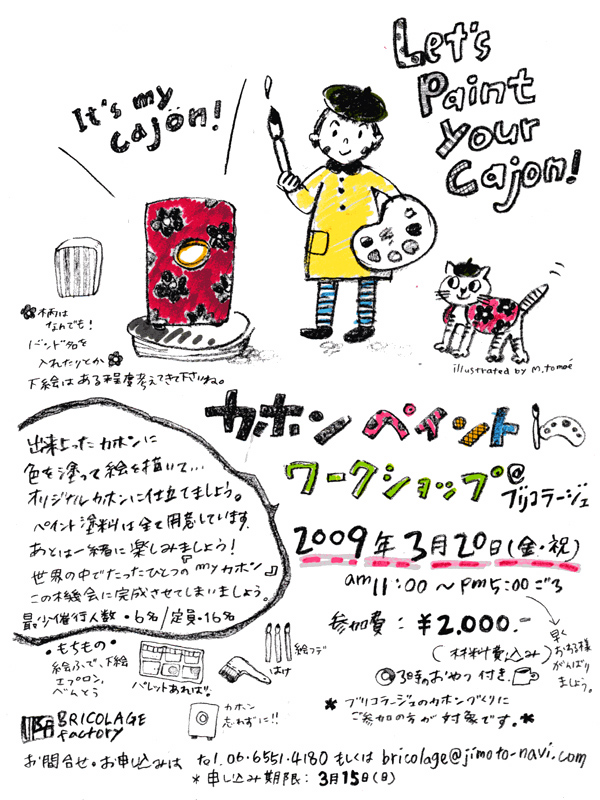 Let's
Paint
your
Cajon!
It's my
Cajön!
柄は
なんでも!
バンド名を
入れたりとか
下絵はある程度考えてきて下さいね。
illustrated by M.tomoé
カホン ペイント
ワークショップ@
ブリコラージュ
出来上ったカホンに
色を塗って絵を描いて...
オリジナルカホンに仕立てましょう。
ペイント塗料は全て用意しています。
あとは一緒に楽しみましょう!
世界の中でたったひとつの『myカホン』
この機会に完成させてみましょう。
最少催行人数・6名/定員・16名
2009年3月20日(金・祝)
am11:00〜pm5:00ごろ
参加費:¥2.000.-
(材料費込み)
3時のおやつ付き.
早く
がんばり
ましょう。
*ブリコラージュのカホンづくりに
ご参加の方が対象です。*
・もちもの・
絵ふで、下絵
エプロン、
べんとう
パレットあれば!
はけ
絵フデ
カホン
忘れずに!!
BRICOLAGE
factory
お問合せ・お申し込みは tel.06・6551・4180 もしくは bricolage@jimoto-navi.com
*申し込み期限:3月15日(日)